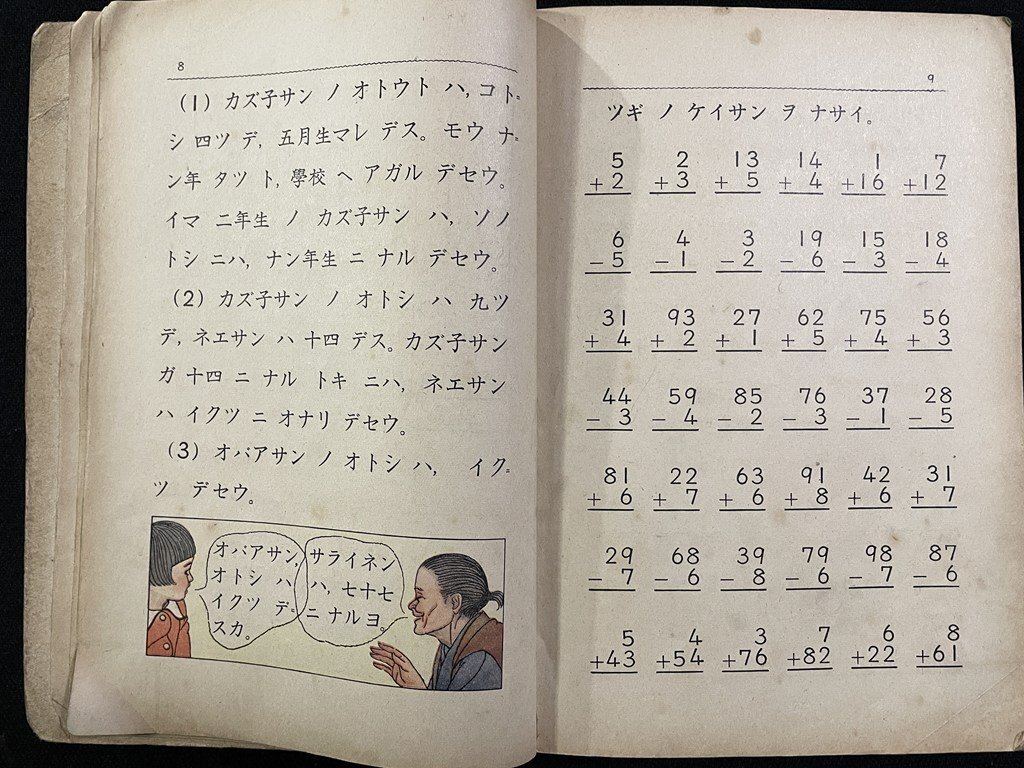 8
(1) カズ子サン ノ オトウト ハ, コト=
シ 四ツ デ, 五月生マレ デス。 モウ ナ=
ン年 タツ ト, 學校 ヘ アガル デセウ。
イマ 二年生 ノ カズ子サン ハ, ソノ
トシ ニハ, ナン年生 ニ ナル デセウ。
(2) カズ子サン ノ オトシ ハ 九ツ
デ, ネエサン ハ 十四 デス。 カズ子サン
ガ 十四 ニ ナル トキ ニハ, ネエサン
ハ イクツ ニ オナリ デセウ。
(3) オバアサン ノ オトシ ハ, イク=
ツ デセウ。
オバアサン,
オトシ ハ
イクツ デ=
スカ。
サライネン
ハ, 七十七
ニ ナルヨ。
9
ツギ ノ ケイサン ヲ ナサイ。
5 2 13 14 1 7
+2 +3 +5 +4 +16 +12
6 4 3 19 15 18
-5 -1 -2 -6 -3 -4
31 93 27 62 75 56
+4 +2 +1 +5 +4 +3
44 59 85 76 37 28
-3 -4 -2 -3 -1 -5
81 22 63 91 42 31
+6 +7 +6 +8 +6 +7
29 68 39 79 98 87
-7 -6 -8 -6 -7 -6
5 4 3 7 6 8
+43 +54 +76 +82 +22 +61